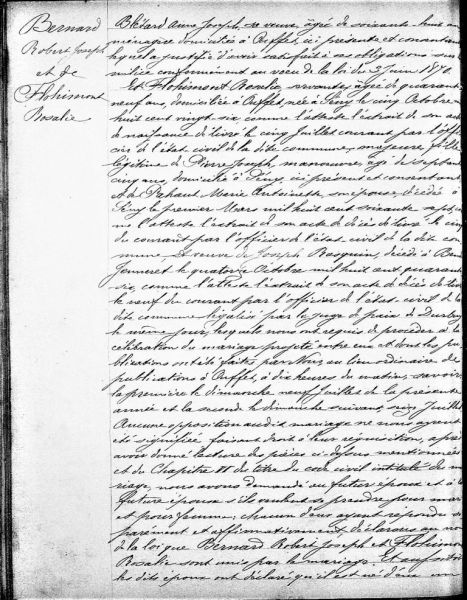 Bernard
Robert Joseph
et de
Flohimont
Rosalie
Blétard Anne Joseph, sa veuve, âgée de soixante huit ans
ménagère domiciliée à Ouffet, ici présente et consentant
lequel a justifié d'avoir satisfait à ses obligations sur
milice conformément au vœu de la loi du 3 Juin 1870.
Et Flohimont Rosalie, servante, âgée de quarante
neuf ans, domiciliée à Ouffet née à Seny le cinq Octobre
huit cent vingt six comme l'atteste l'extrait de son acte
de naissance délivré le cinq Juillet courant par l'offi
cier de l'état civil de la dite commune, majeure, fille
légitime de Pierre Joseph, manouvrier, âgé de septante
cinq ans, domicilié à Seny, ici présent et consentant
et de Dahaut Marie Antoinette son épouse décédée à
Seny le premier Mars mil huit cent soixante sept com
me l'atteste l'extrait de son acte de décès délivré le cinq
du courant par l'officier de l'état civil de la dite com
mune. Veuve de Joseph Basquin, décédé à
le quatorze Octobre mil huit cent quarante
six, comme l'atteste l'extrait de son acte de décès délivré
le neuf du courant par l'officier de l'état civil de la
dite commune légalisé par le juge de paix de Durbuy
le même jour, lesquels nous ont requis de procéder à la
célébration du mariage projeté entre eux et dont les pu
blications ont été faites par Nous, au lieu ordinaire des
publications à Ouffet, à dix heures du matin, savoir
la première le dimanche neuf Juillet de la présente
année et la seconde le dimanche suivant, seize Juillet
Aucune opposition audit mariage ne nous ayant
été signifiée, faisant droit à leur réquisition, après
avoir donné lecture des pièces ci-dessus mentionnées
et du Chapitre VI du titre du code civil intitulé du ma
riage, nous avons demandé au futur époux et à la
future épouse s'ils veulent se prendre pour mari
et pour femme; chacun d'eux ayant répondu sé
parément et affirmativement, déclarons au nom
de la loi que Bernard Robert Joseph et Flohimont
Rosalie sont unis par le mariage. Et aussitôt
les dits époux ont déclaré qu'il est né d'eux un